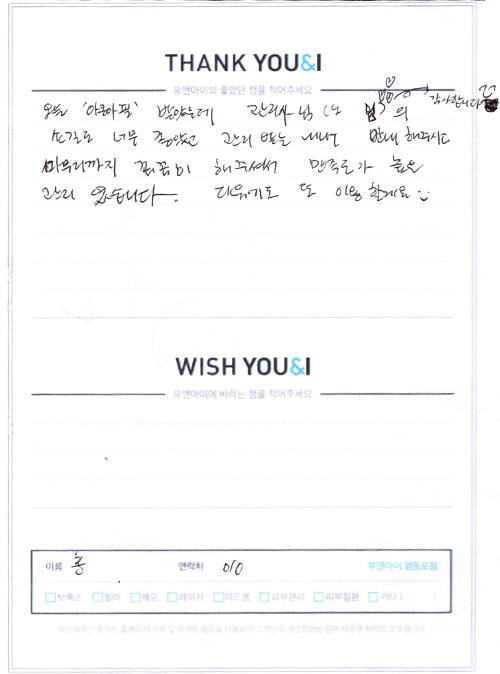 THANK YOU&I
유앤아이의 좋았던 점을 적어주세요
오늘 '아쿠아필' 받았는데 관리사님 의 감사합니다
손길도 너무 좋았고 관리 받는 내내 안내 해주시고
마무리까지 꼼꼼히 해주셔서 만족도가 높은
관리 였습니다. 다음에도 또 이용 할게요
WISH YOU&I
유앤아이에 바라는 점을 적어주세요
이름 홍 연락처 010 유앤아이 영등포점
보톡스 필러 제모 레이저 여드름 피부관리 피부질환 기타 ( )